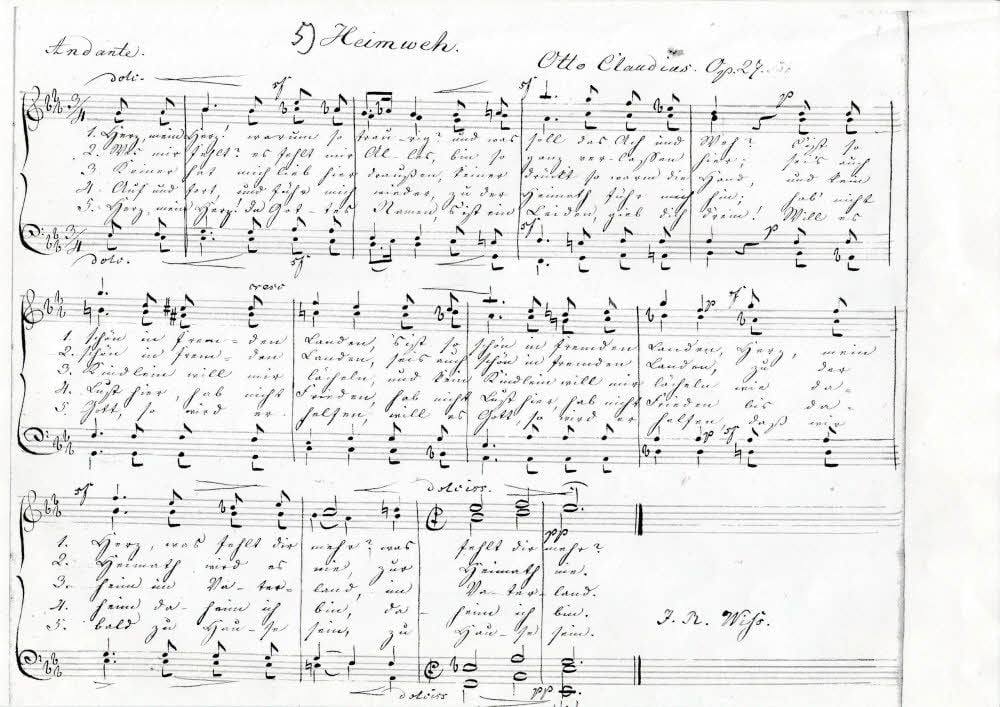 5) Heimweh.
Andante.
Otto Claudius. Op. 27.
dolc.
sf
sf
p
1. Herz, mein Herz! warum so trau-rig? und was soll das Ach und Weh? 's ist so
2. Was mir fehlt? es fehlt mir Al-les, bin so ganz ver-lassen hier; sei's auch
3. Keiner hat mich lieb hier draußen, keiner drückt so warm die Hand, und kein
4. Auf und fort, und führ mich wieder, zu der Heimath führ mich hin; hab nicht
5. Herz, mein Herz! da Got-tes Namen, 's ist ein Leiden, gieb dich drein! Will es
sf
p
dolc.
sf
cresc
p
sf
1. schön in frem-den Landen, 's ist so schön in fremden Landen, Herz, mein
2. schön in frem-den Landen, sei's auch schön in fremden Landen, zu der
3. Kindlein will mir lächeln, und kein Kindlein will mir lächeln wie da-
4. Lust hier, hab nicht Frieden, hab nicht Lust hier, hab nicht Frieden bis da-
5. Gott, so wird er helfen, will es Gott, so wird er helfen, daß wir
p sf
sf
dolciss.
pp
1. Herz, was fehlt dir mehr? was fehlt dir mehr?
2. Heimath wird es nie, zur Heimath nie.
3. heim im Va-ter-land, im Va-ter-land.
4. heim da-heim ich bin, da-heim ich bin.
5. bald zu Hau-se sein, zu Hau-se sein.
J. R. Wyss.
dolciss
pp